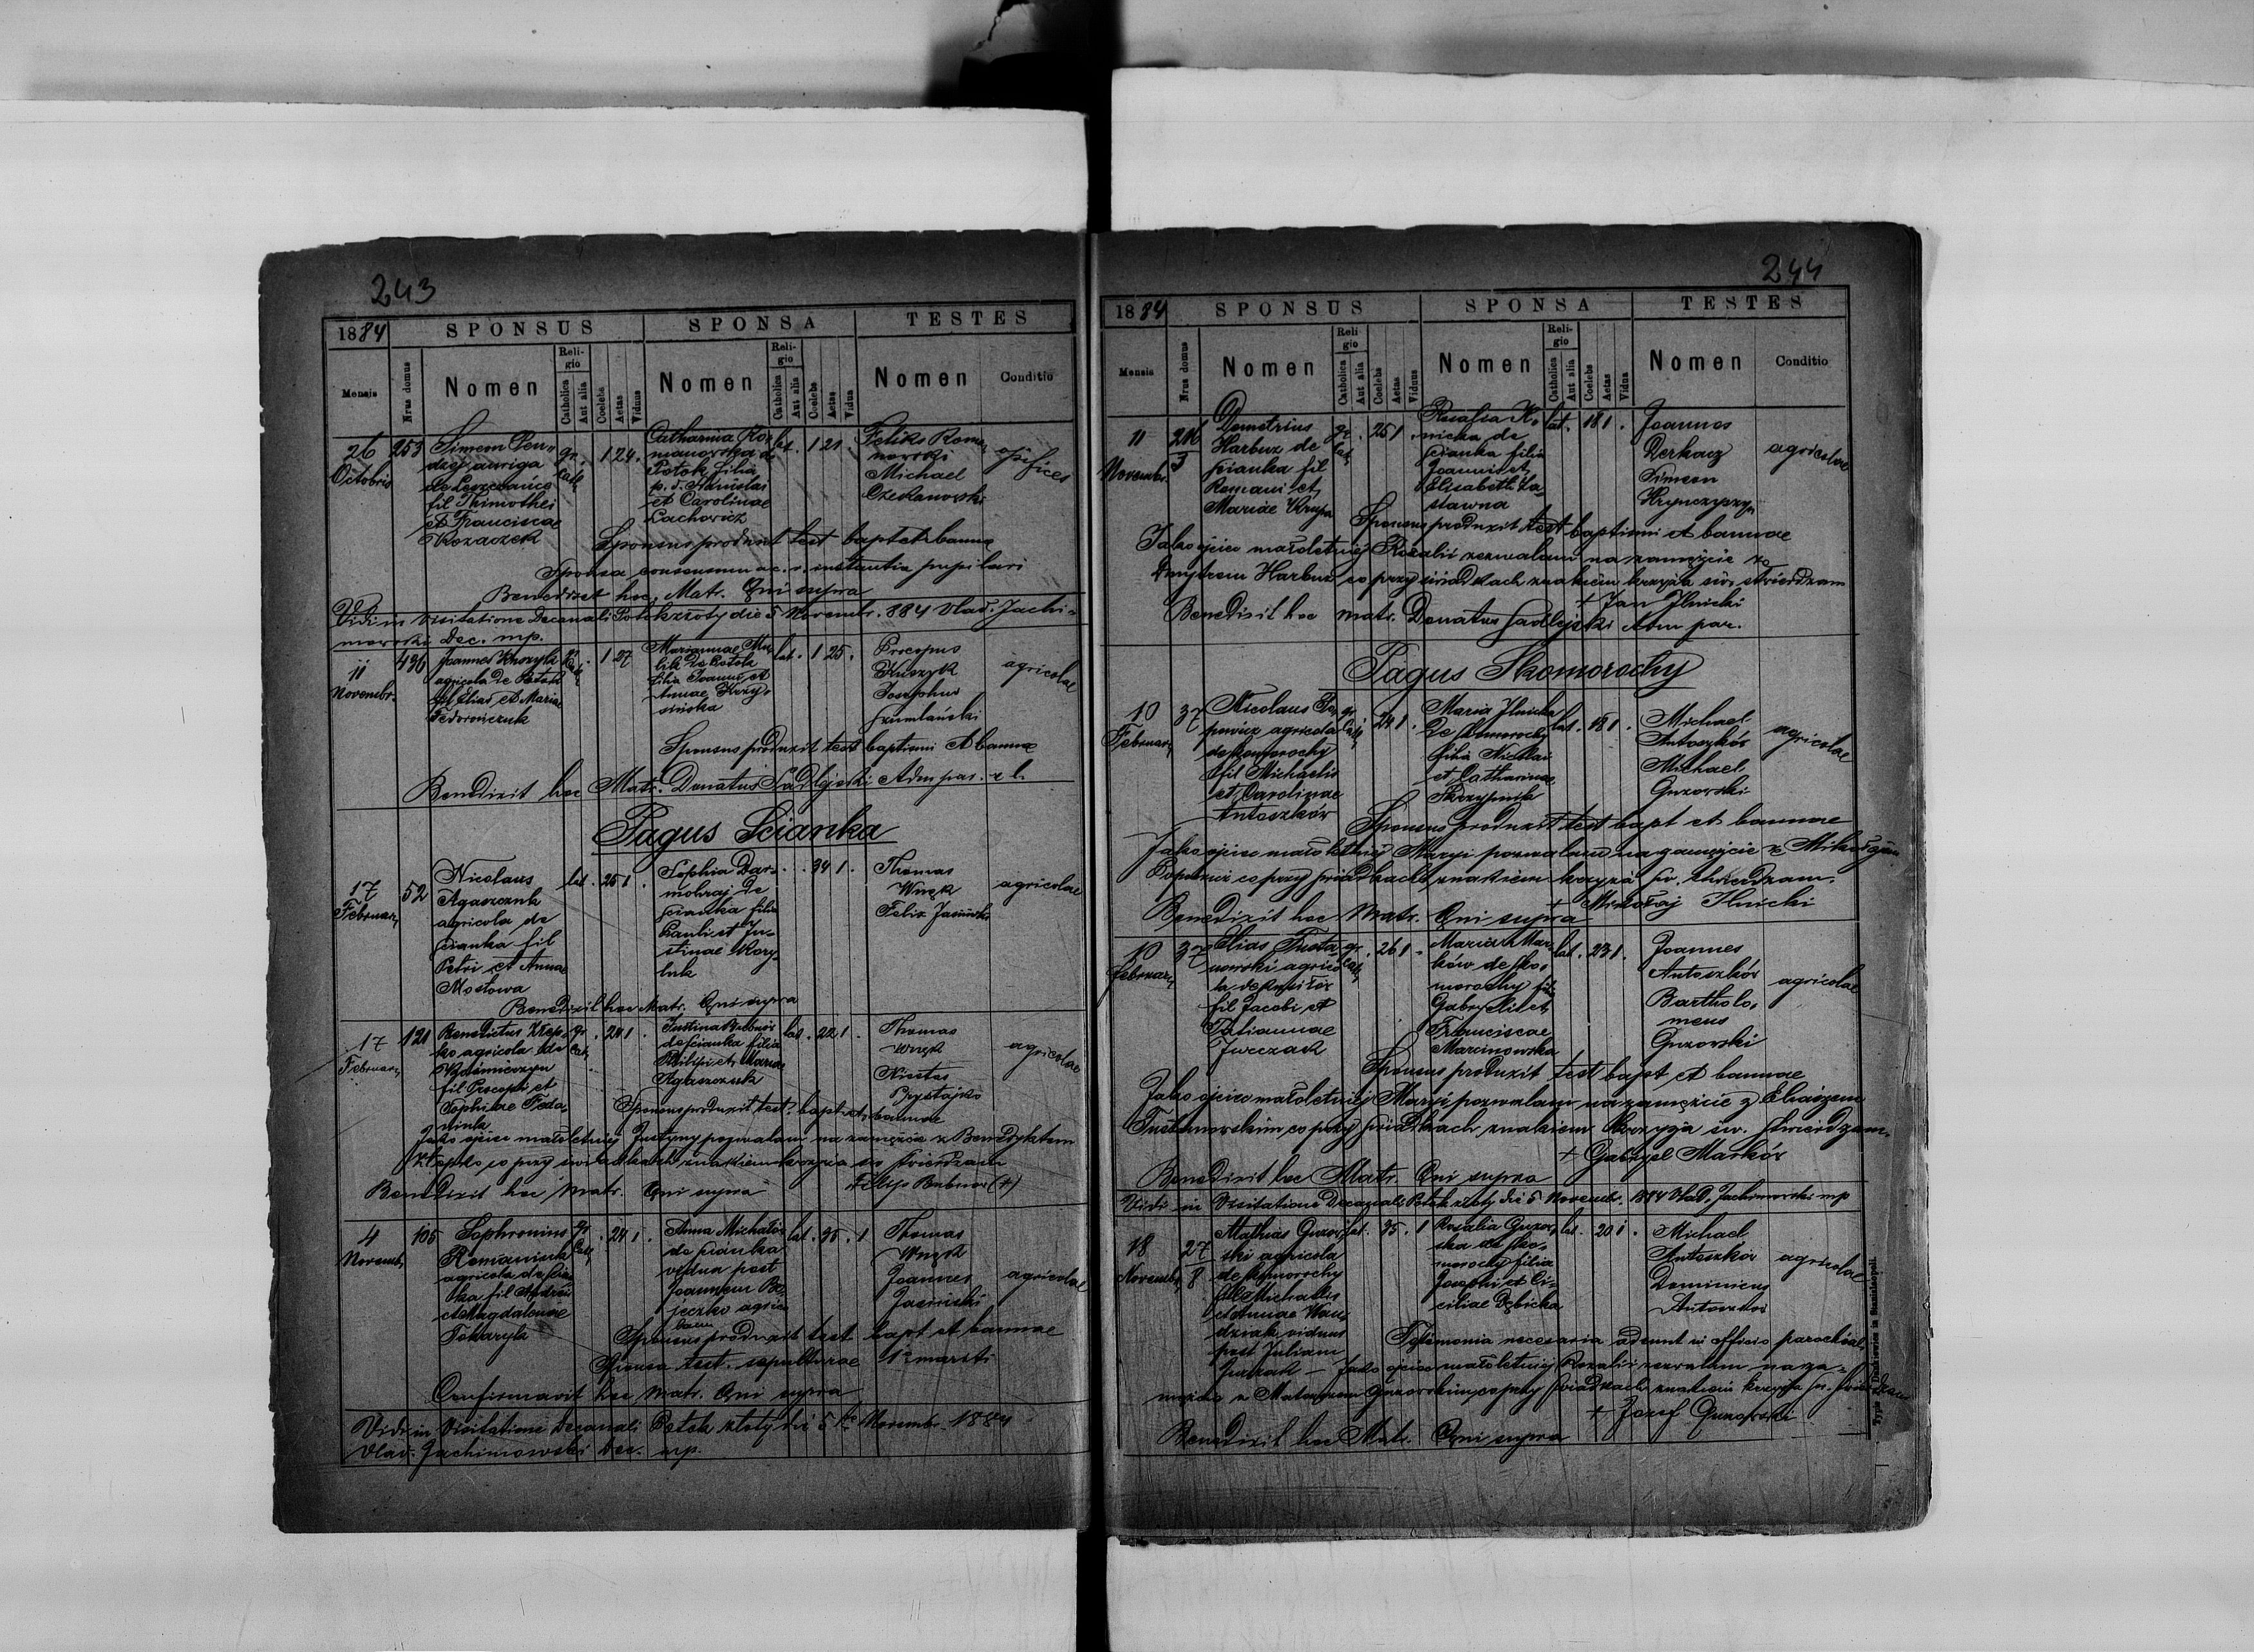 243
1884 SPONSUS SPONSA TESTES
Mensis Nrus domus Nomen Religio Catholica Aut alia Coelebs Aetas Viduus Nomen Religio Catholica Aut alia Coelebs Aetas Vidua Nomen Conditio
26 Octobris 253
Simeon
auriga
fil Thimothei
et Franciscae
Kozaczek
gr. cath. 1 24.
Catharina Ro
manowska de
Potok filia
p. d. Stanislai
et Carolinae
Lachowicz
lat. 1 21
Feliks Roma
nowski
Michael
Czekanowski
opifices
Sponsus produxit test bapt et bannae
Sponsa consensum a c. r. instantia pupilari
Benedixit hoc Matr. Qui supra
Vidi in Visitatione Decanali Potok złoty die 5 Novembr. 884 Vlad. Jachi-
mowski Dec. mp.
11 Novembr. 436
Joannes
agricola de Potok
fil Eliae et Mariae
Fedorończuk
1 27
Mariannae
de Potok
filia Joannis et
Annae Krzy-
sińska
lat. 1 25.
Procopius
Kuszyk
Josephus
Szumlański
agricolae
Sponsus produxit test baptismi et bannae
Benedixit hoc Matr. Donatus Sadlejski Adm par. r. l.
Pagus Scianka
17 Februar. 52
Nicolaus
Agaszczuk
agricola de
Scianka fil
Petri et Annae
Mostowa
lat. 25 1.
Sophia Dar-
mohraj de
Scianka filia
Pauli et Ju-
stinae Kory-
luk
34 1.
Thomas
Wnęk
Felix Jasiński
agricolae
Benedixit hoc Matr. Qui supra
17 Februar. 121
Benedictus
ko agricola de
fil Procopii et
Sophiae Feda-
niuk
gr. cath. 24 1.
Justina Bubniów
de Scianka filia
Philippi et Mariae
Agaszczuk
lat. 22 1.
Thomas
Wnęk
Nicetas
Prystajko
agricolae
Sponsus produxit test. bapt et bannae
Jako ojciec małoletniej Justyny pozwalam na zamęźcie z Benedyktem
co przy świadkach znakiem krzyża św stwierdzam
Benedixit hoc Matr. Qui supra Filip Bubniów (+)
4 Novemb. 105
Sophronius
Romaniuk
agricola de Scian
ka fil Andreae
et Magdalenae
Tokaryk
gr. cath. 24 1.
Anna Michałów
de Scianka
vidua post
Joannem Be
jeczko agrico
lam
lat. 35. 1
Thomas
Wnęk
Joannes
Jasiński
agricolae
Sponsus produxit test bapt et bannae
Sponsa test. sepulturae 1i mariti
Confirmavit hoc Matr. Qui supra
Vidi in Visitatione Decanali Potok złoty die 5 Novembr. 1884
Vlad. Jachimowski Dec. mp.
244
1884 SPONSUS SPONSA TESTES
Mensis Nrus domus Nomen Religio Catholica Aut alia Coelebs Aetas Viduus Nomen Religio Catholica Aut alia Coelebs Aetas Vidua Nomen Conditio
11 Novembr.
Demetrius
Harbuz de
Scianka fil
Romani et
Mariae Krupa
gr. cath. 25 1.
Rosalia Il-
nicka de
Scianka filia
Joannis et
Elisabeth
lat. 18 1.
Joannes
Derkacz
Simeon
agricolae
Sponsus produxit test baptismi et bannae
Jako ojciec małoletniej Rozalii zezwalam na zamęźcie z
Dmytrem Harbuz co przy świadkach znakiem krzyża św. stwierdzam
+ Jan Ilnicki
Benedixit hoc matr. Donatus Sadlejski Adm par.
Pagus Skomorochy
10 Februar. 37
Nicolaus Po-
powicz agricola
de Skomorochy
fil Michaelis
et Carolinae
Antoszków
gr. cath. 24 1.
Maria Ilnicka
de Skomorochy
filia Nicolai
et Catharinae
Skrzypnik
lat. 18 1.
Michael
Antoszków
Michael
Guzowski
agricolae
Sponsus produxit test bapt et bannae
Jako ojciec małoletniej Maryi pozwalam na zamęźcie z Mikołajem
Popowicz co przy świadkach znakiem krzyża św. stwierdzam.
+ Mikołaj Ilnicki
Benedixit hoc Matr. Qui supra
10 Februar. 37
Elias Tusta-
nowski agrico
la
fil Jacobi et
Julianae
Jurczak
gr. cath. 26 1.
Maria Mar-
ków de Sko-
morochy fil.
Gabrielis et
Franciscae
Marcinowska
lat. 23 1.
Joannes
Antoszków
Bartholo-
meus
Guzowski
agricolae
Sponsus produxit test bapt et bannae
Jako ojciec małoletniej Maryi pozwalam na zamęźcie z Eliaszem
Tustanowskim co przy świadkach znakiem krzyża św. stwierdzam.
+ Gabryel Marków
Benedixit hoc Matr. Qui supra
Vidi in Visitatione Decanali Potok złoty die 5 Novembr. 1884 Vlad. Jachimowski mp
18 Novembr. 27
Mathias Guzow
ski agricola
de Skomorochy
fil Michaelis
et Annae Wan
dziak viduus
post Juliam
Jurczak
lat. 35. 1
Rosalia Guzow
ska de Sko-
morochy filia
Josephi et Ci-
ciliae Dębicka
lat. 20 1.
Michael
Antoszków
Dominicus
Antoszków
agricolae
Testimonia necesaria adsunt in officio parochiali
Jako ojciec małoletniej Rozalii zezwalam na za-
męźcie z Mateuszem Guzowskim co przy świadkach znakiem krzyża św. stwierdzam
+ Józef Guzowski
Benedixit hoc Matr. Qui supra